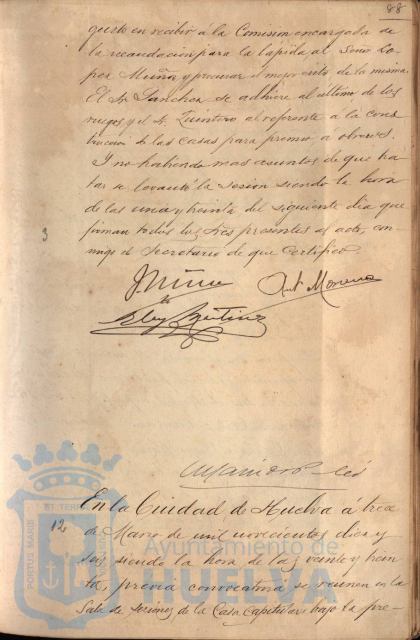 88
gusto en recibir á la Comisión encargada de
la recaudación para la lápida al Señor Lo-
pez Muñoz y procurar el mejor exito de la misma.
El Sr. Sanchez se adhiere al ultimo de los
ruegos y el Sr. Quintero al referente á la cons-
trucción de las casas para premio a obreros.
Y no habiendo mas asuntos de que tra-
tar se levantó la sesión siendo la hora
de las una y treinta del siguiente dia que
firman todos los Sres presentes al acto, con-
migo el Secretario de que certifico.
3
Ant Moreno
En la Ciudad de Huelva á trece
12
de Marzo de mil novecientos diez y
seis siendo la hora de las veinte y trein-
ta, previa convocatoria se reunen en la
Sala de Sesiones de la Casa Capitular bajo la pre-
PORTUS MARIS
ET TERRAE
Ayuntamiento de
HUELVA